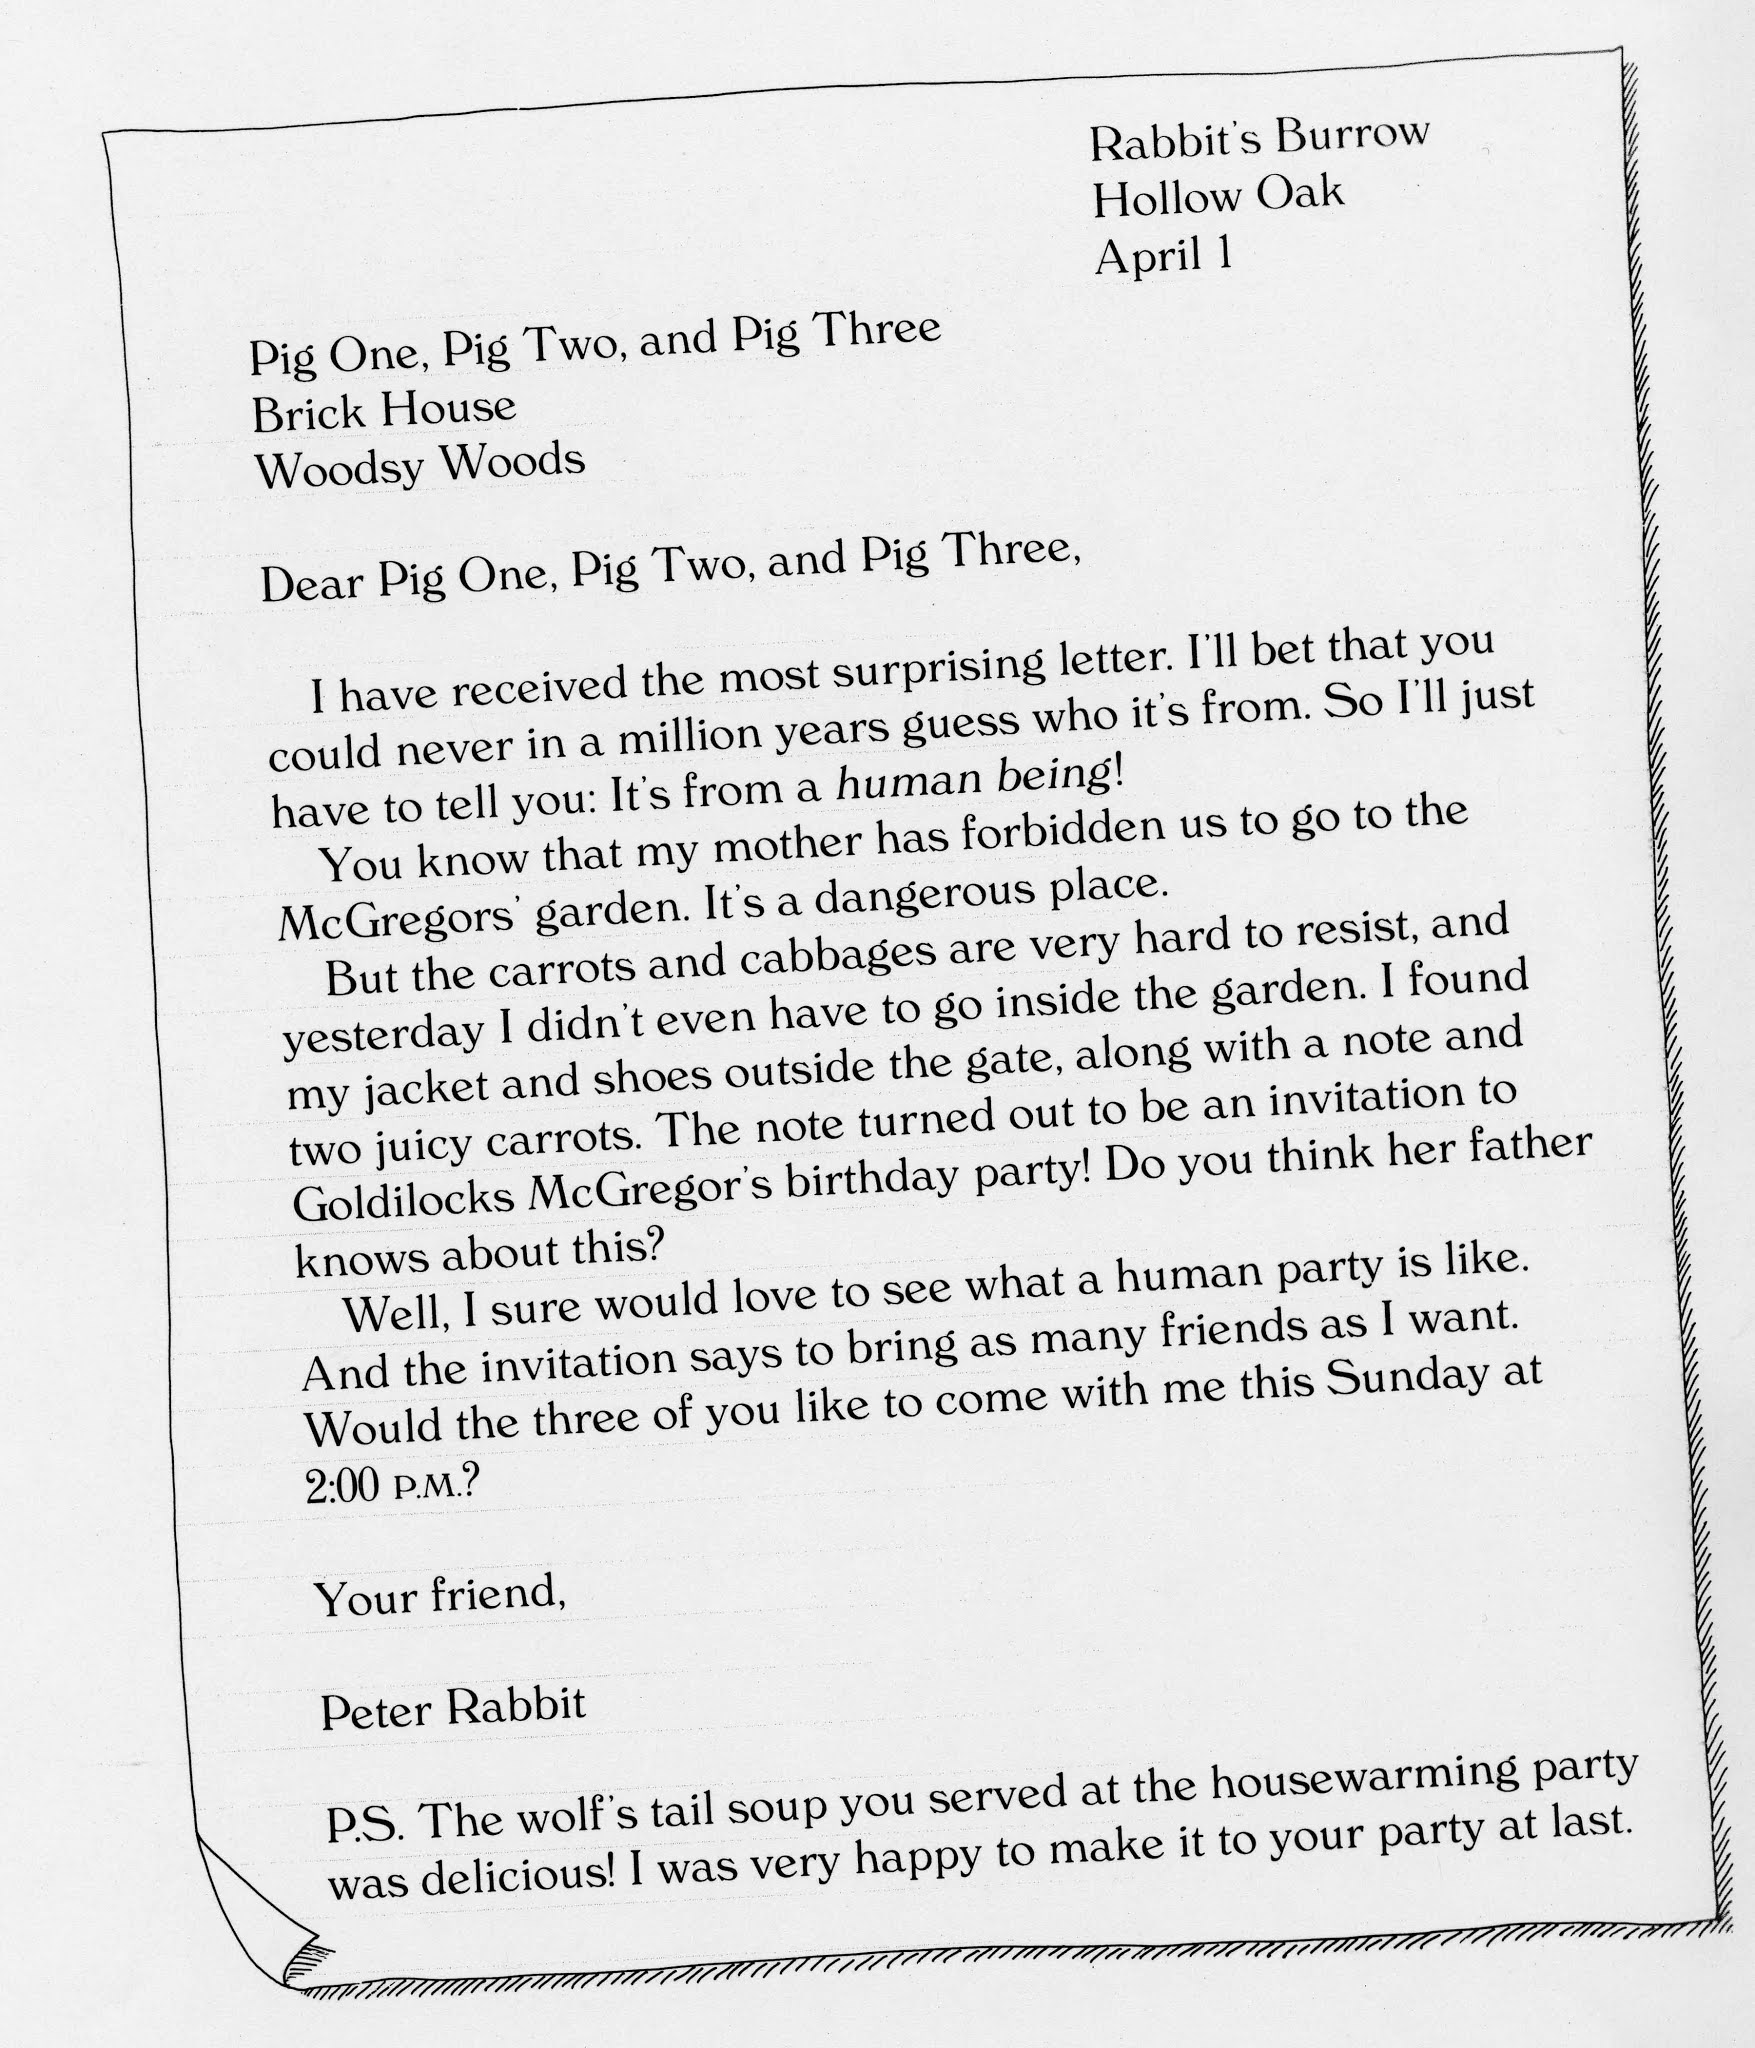 Rabbit's Burrow
Hollow Oak
April 1
Pig One, Pig Two, and Pig Three
Brick House
Woodsy Woods
Dear Pig One, Pig Two, and Pig Three,
I have received the most surprising letter. I'll bet that you
could never in a million years guess who it's from. So I'll just
have to tell you: It's from a human being!
You know that my mother has forbidden us to go to the
McGregors' garden. It's a dangerous place.
But the carrots and cabbages are very hard to resist, and
yesterday I didn't even have to go inside the garden. I found
my jacket and shoes outside the gate, along with a note and
two juicy carrots. The note turned out to be an invitation to
Goldilocks McGregor's birthday party! Do you think her father
knows about this?
Well, I sure would love to see what a human party is like.
And the invitation says to bring as many friends as I want.
Would the three of you like to come with me this Sunday at
2:00 P.M.?
Your friend,
Peter Rabbit
P.S. The wolf's tail soup you served at the housewarming party
was delicious! I was very happy to make it to your party at last.